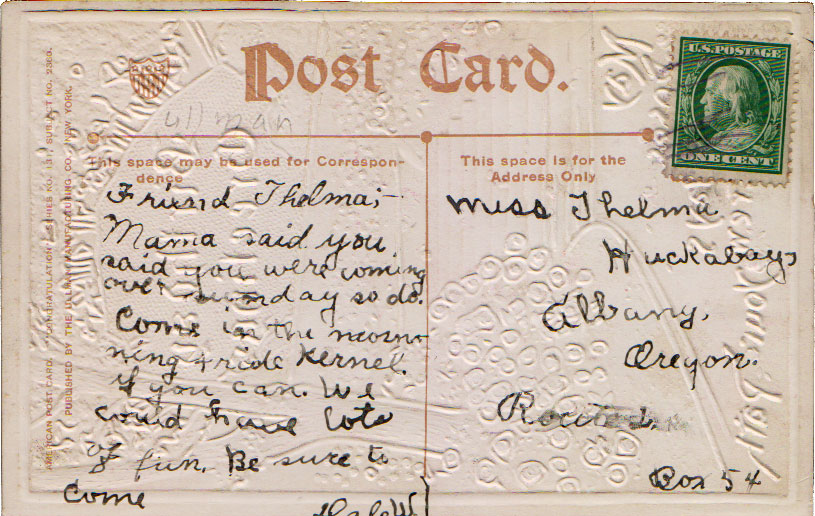 Post Card.
U.S. POSTAGE
ONE CENT
ullman
This space may be used for Correspon-
dence
Friend Thelma;-
Mama said you
said you were coming
over sunday so do.
Come in the mosrn-
ning + ride Kernel.
if you can. We
could have lots
of fun. Be sure to
come
This space is for the
Address Only
Miss Thelma
Huckabays
Albany,
Oregon.
Route
Box 54
AMERICAN POST CARD. "CONGRATULATION" SERIES NO. 131 SUBJECT NO.
PUBLISHED BY THE ULLMAN MANUFACTURING CO., NEW YORK